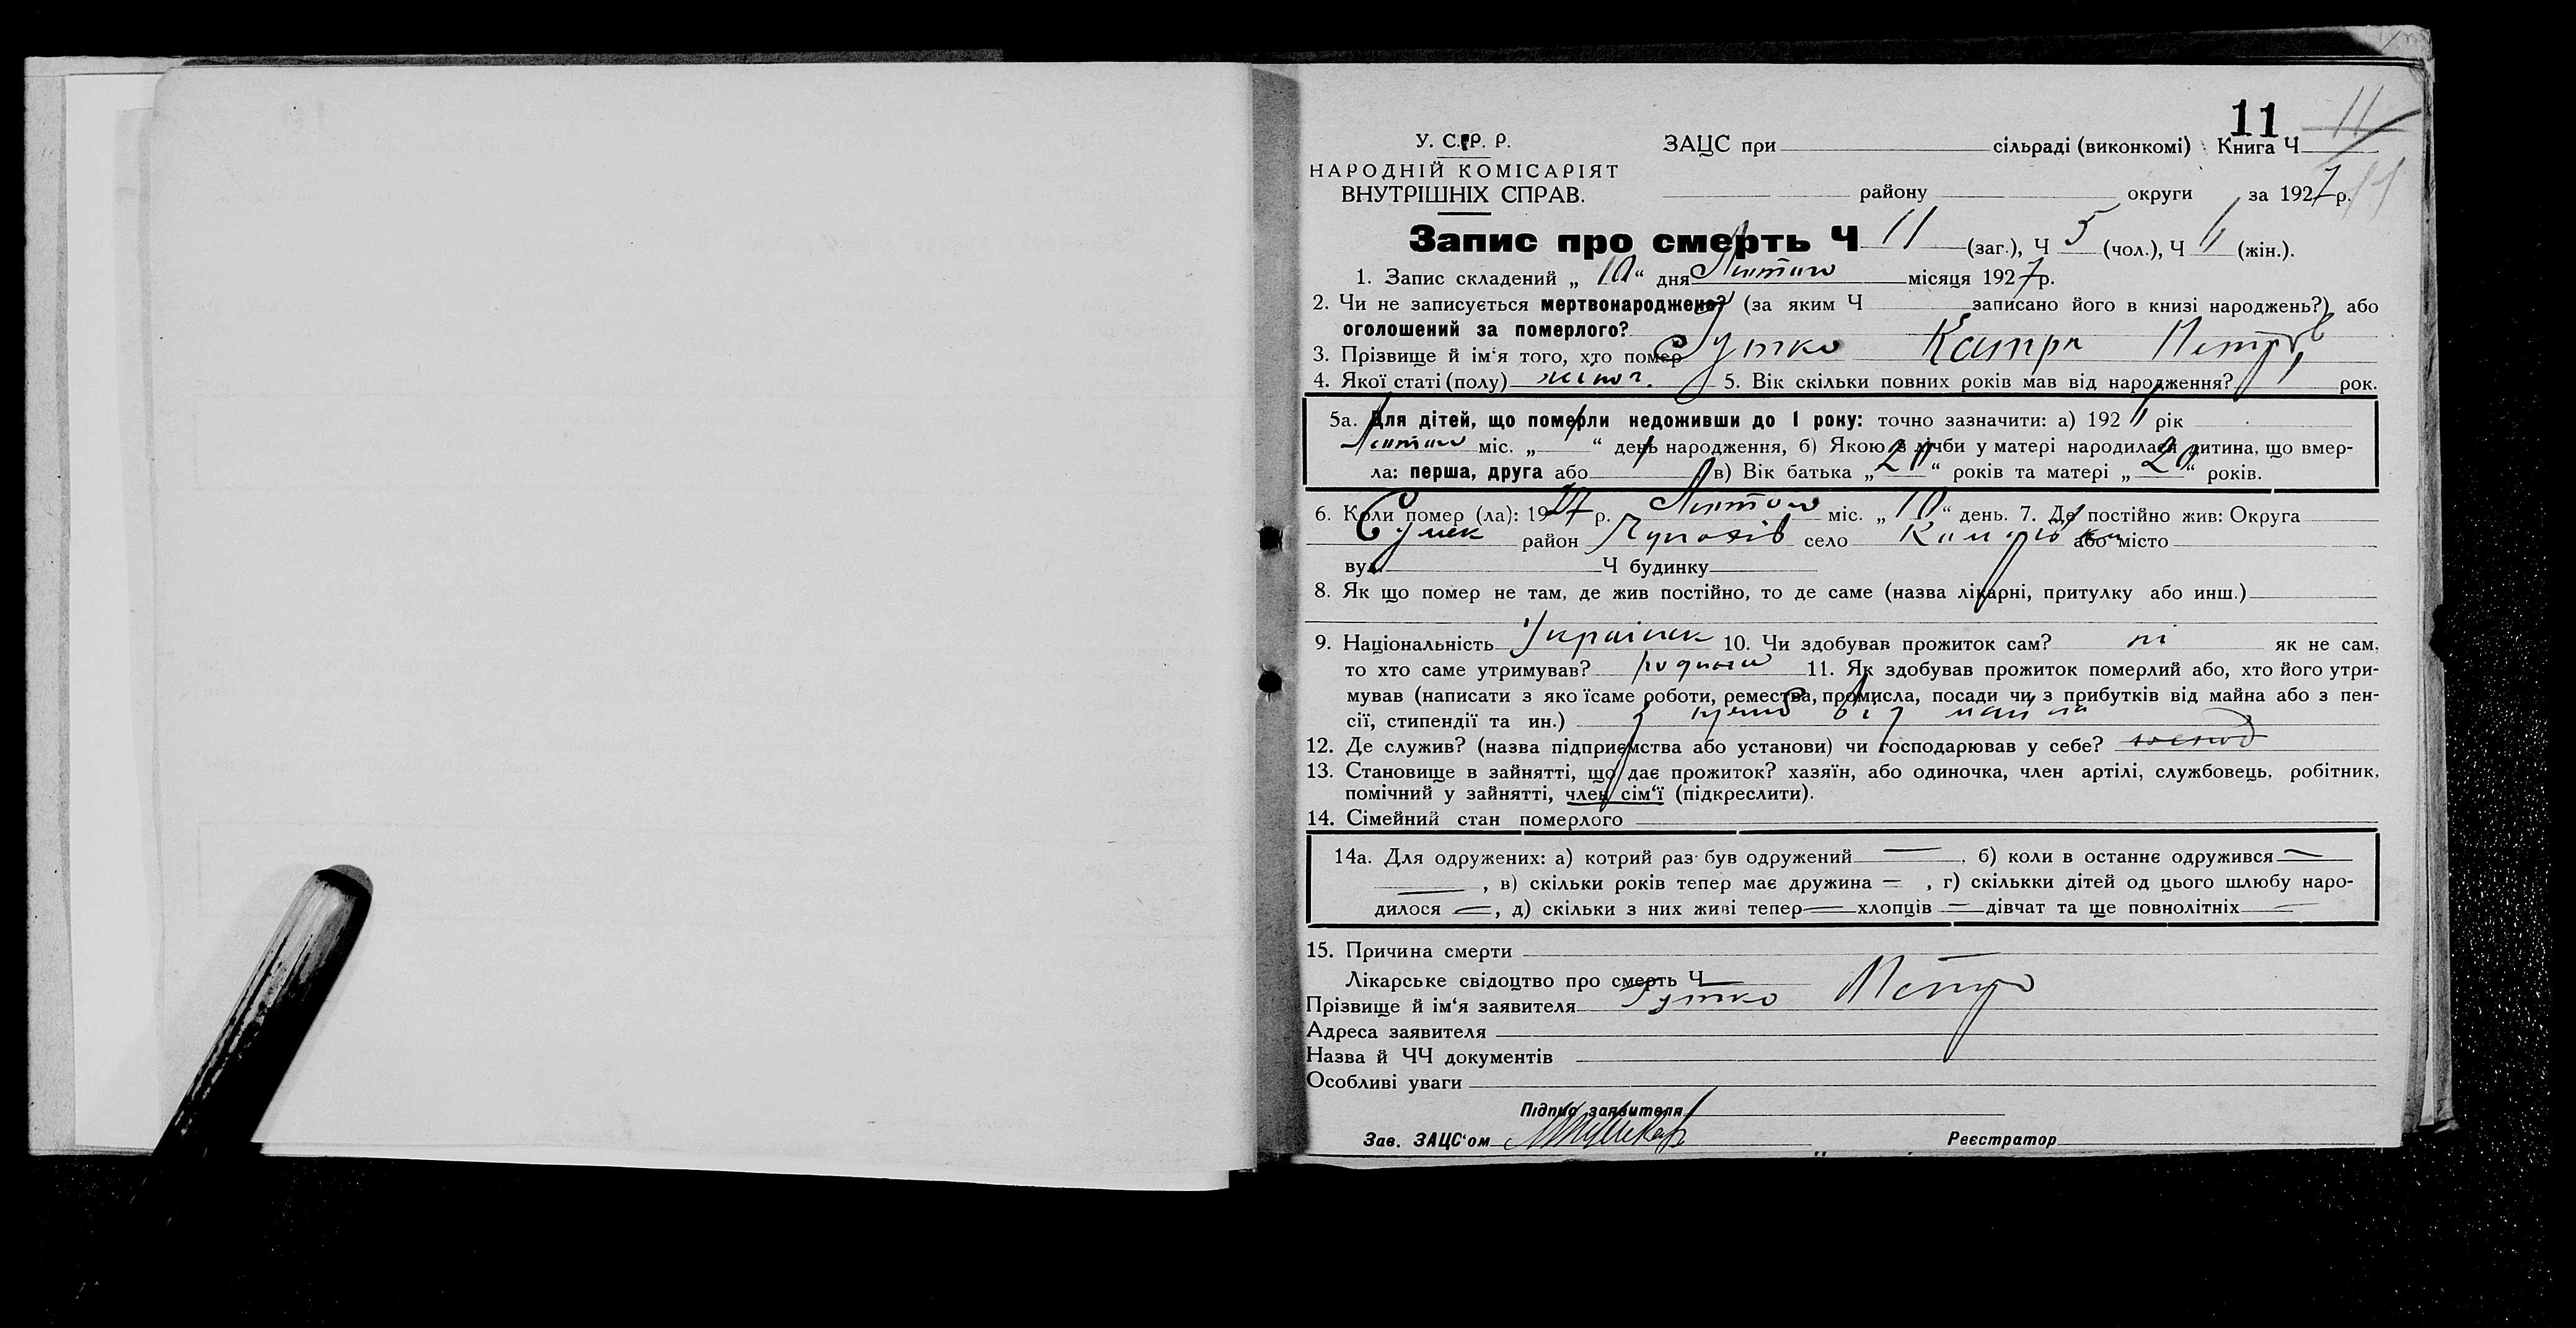 11 11
У. С.Р.Р. ЗАЦС при сільраді (виконкомі) Книга Ч
НАРОДНІЙ КОМІСАРІЯТ
ВНУТРІШНІХ СПРАВ. району округи за 1927 р. 11
Запис про смерть Ч 11 (заг.), Ч 5 (чол.), Ч (жін.).
1. Запис складений „ 10 “ дня Лютого місяця 1927 р.
2. Чи не записується мертвонароджене? (за яким Ч записано його в книзі народжень?) або
оголошений за померлого?
3. Прізвище й ім‘я того, хто помер Гутко Катря Петров
4. Якої статі (полу) жіноч. 5. Вік скільки повних років мав від народження? рок.
5а. Для дітей, що померли недоживши до 1 року: точно зазначити: а) 192 рік
міс. „ “ день народження, б) Якою з лічби у матері народилася дитина, що вмер-
ла: перша, друга або в) Вік батька „ “ років та матері „ 20 “ років.
6. Коли помер (ла): 1927 р. Лютого міс. „ 10 “ день. 7. Де постійно жив: Округа
Сумск район село або місто
вул. Ч будинку
8. Як що помер не там, де жив постійно, то де саме (назва лікарні, притулку або инш.)
9. Національність Українк 10. Чи здобував прожиток сам? ні як не сам,
то хто саме утримував? родители 11. Як здобував прожиток померлий або, хто його утри-
мував (написати з яко їсаме роботи, ремества, промисла, посади чи з прибутків від майна або з пен-
сії, стипендії та ин.) від майна
12. Де служив? (назва підприємства або установи) чи господарював у себе?
13. Становище в зайнятті, що дає прожиток? хазяїн, або одиночка, член артілі, службовець, робітник,
помічний у зайнятті, член сім‘ї (підкреслити).
14. Сімейний стан померлого
14а. Для одружених: а) котрий раз був одружений — , б) коли в останнє одружився —
— , в) скільки років тепер має дружина — , г) скількки дітей од цього шлюбу наро-
дилося — , д) скільки з них живі тепер — хлопців — дівчат та ще повнолітніх —
15. Причина смерти —
Лікарське свідоцтво про смерть Ч —
Прізвище й ім‘я заявителя Гутко Петро
Адреса заявителя
Назва й ЧЧ документів
Особливі уваги
Підпис заявителя
Зав. ЗАЦС‘ом Реєстратор